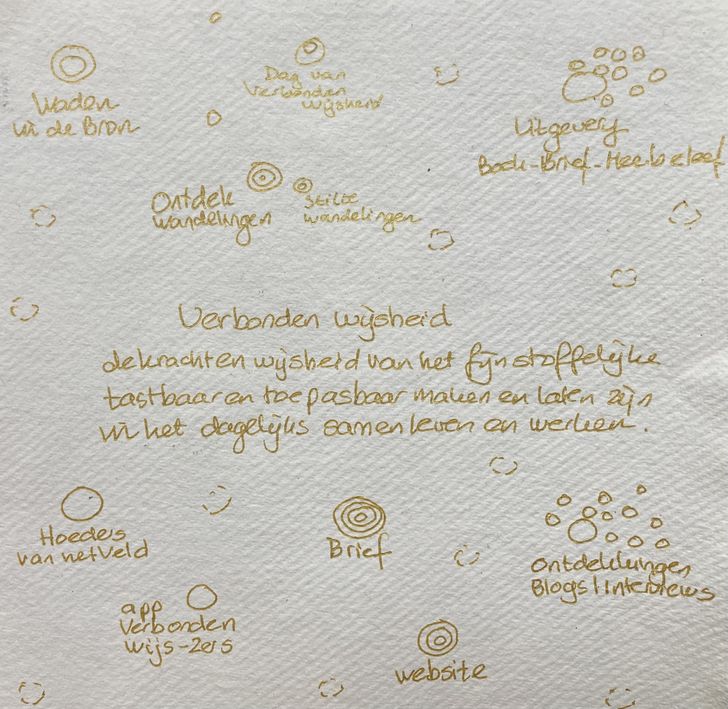 Waden
in de Bron
Dag van
Verbonden
wijsheid
Uitgeverij
Boek-Brief-Meerbeleef
Ontdek
wandelingen
Stilte
wandelingen
Verbonden wijsheid
de kracht en wijsheid van het fijnstoffelijke
tastbaar en toepasbaar maken en laten zijn
in het dagelijks samenleven en werken.
Hoeders
van het Veld
Brief
ontdekkingen
Blogs | Interviews
app
Verbonden
wijs-zers
website